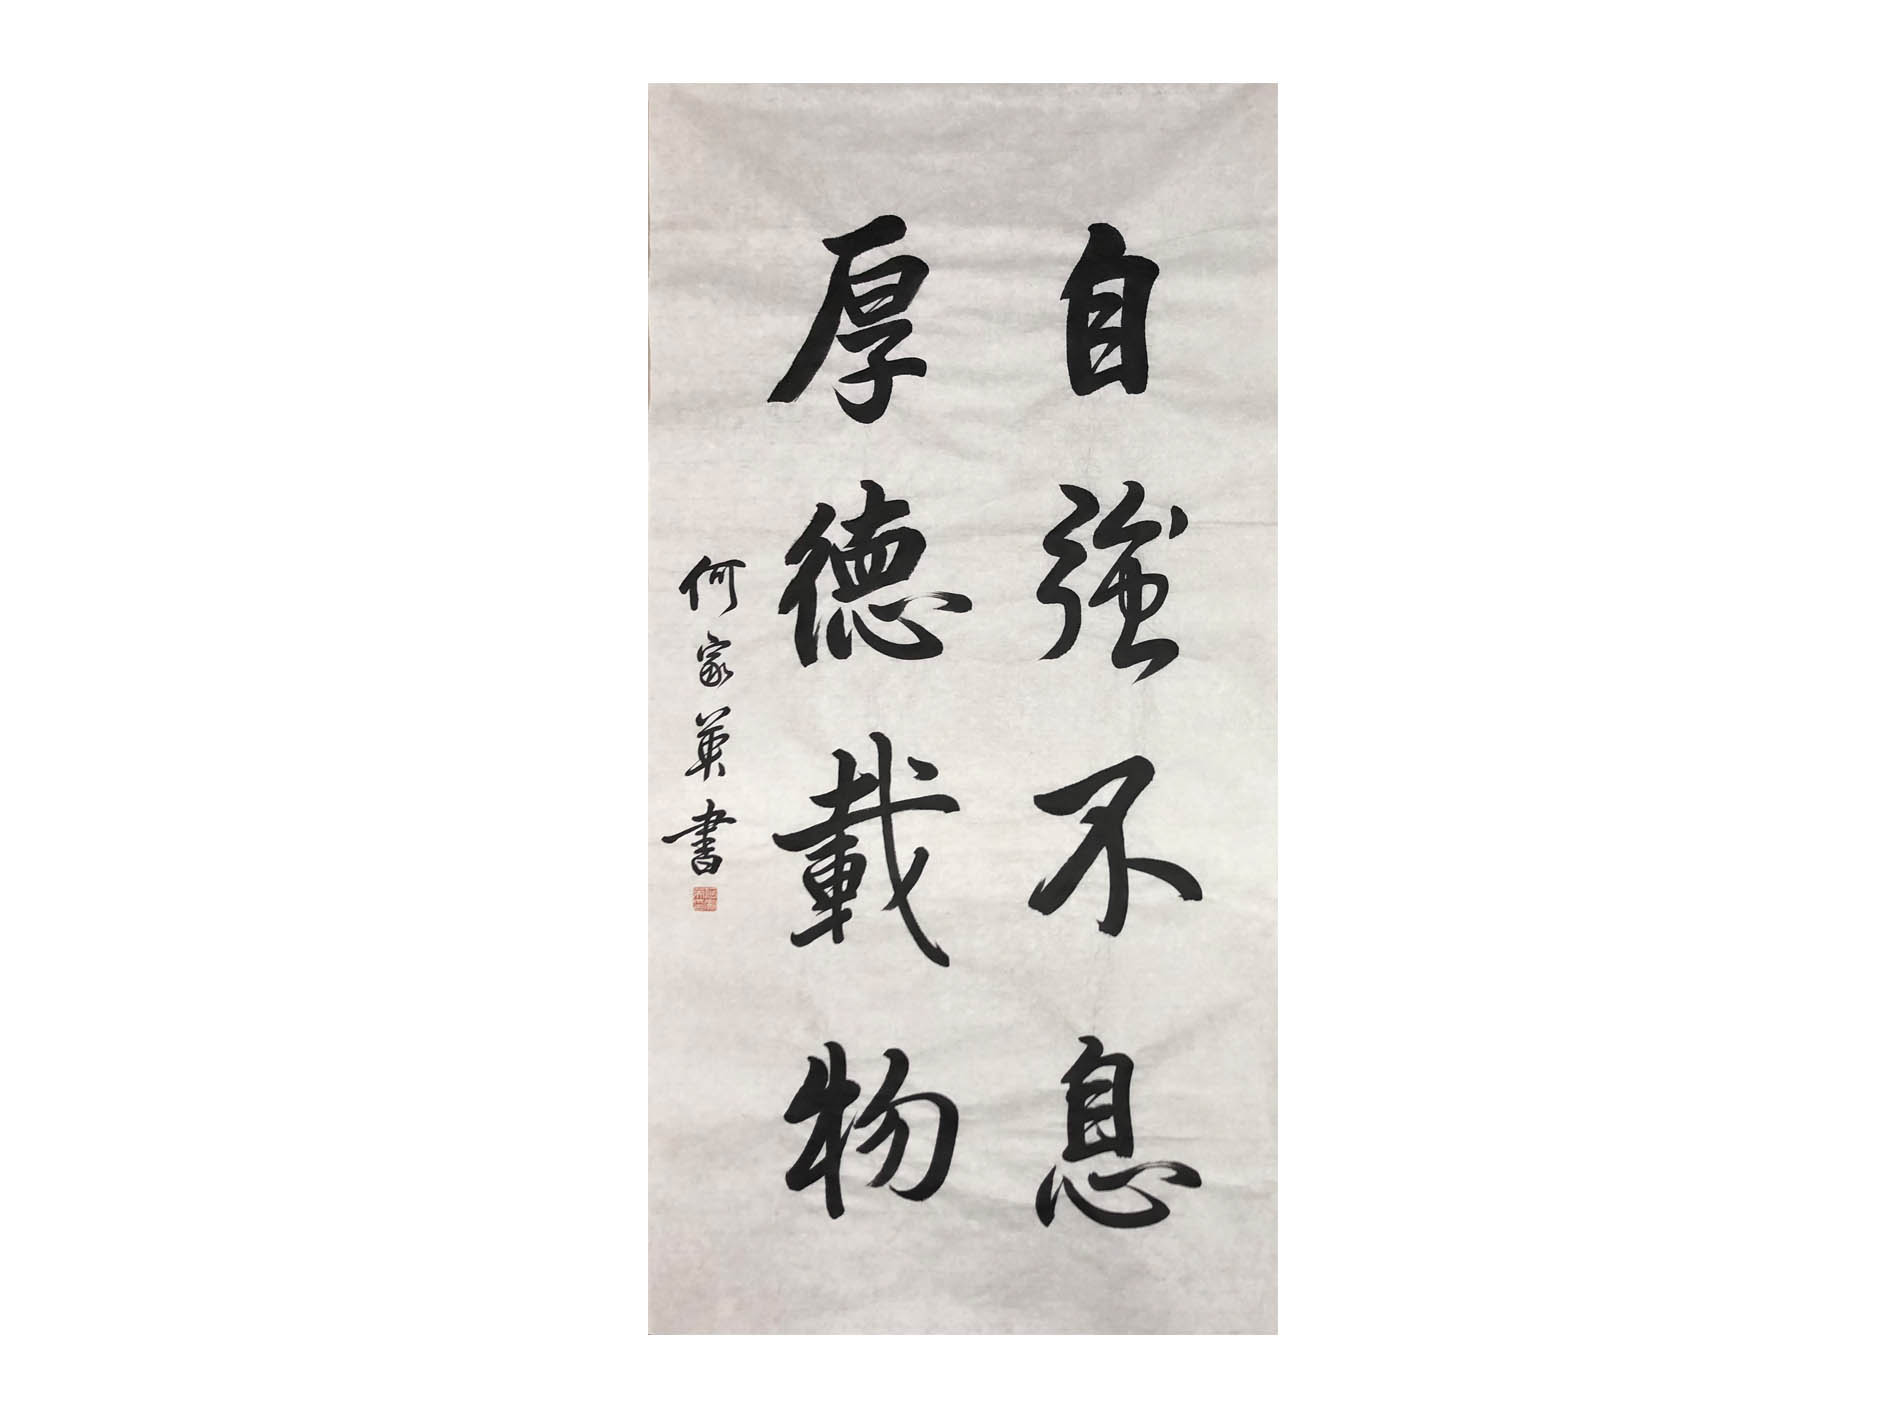 自強不息
厚德載物
何家英書